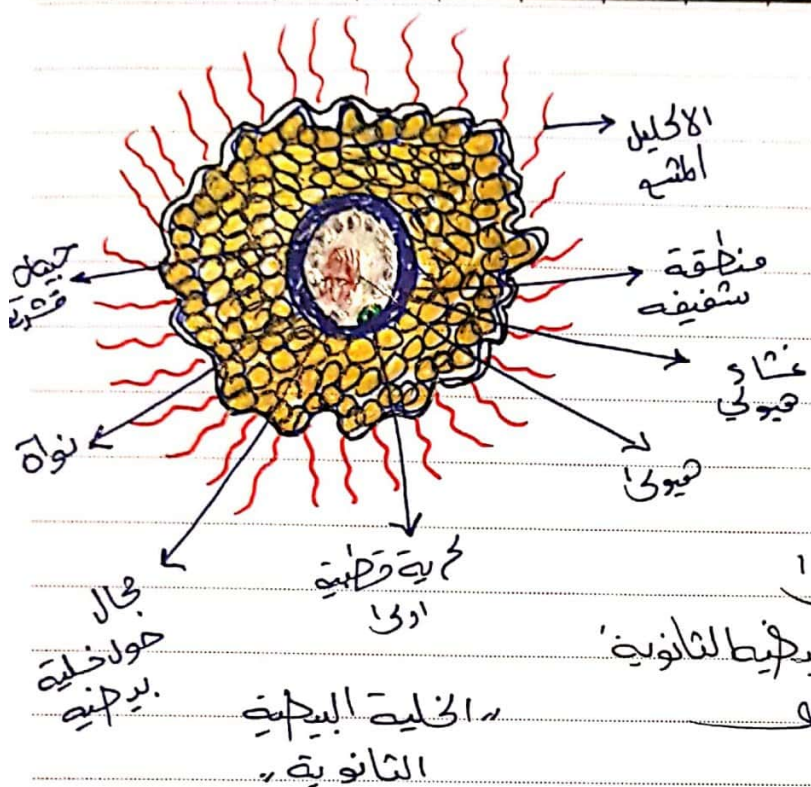 الاكليل
المشع
منطقة
شفيفه
غشاء
هيولي
هيولى
كرية قطبية
اولى
مجال
حول خلية
بيضيه
نواة
قشرية
بيضيه الثانوية
"الخلية البيضية
الثانوية"